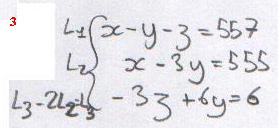 3
L₁ { x - y - z = 557
L₂ x - 3y = 555
L₃-2L₂→L₃ -3z + 6y = 6